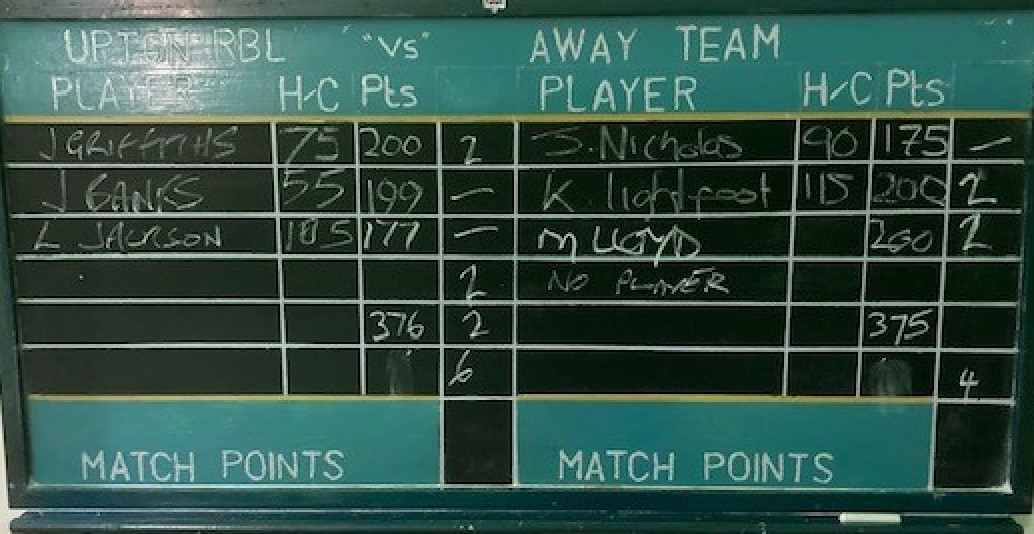 UPTON RBL "Vs" AWAY TEAM
PLAYER H/C Pts PLAYER H/C Pts
J GRIFFITHS 75 200 2 S. Nicholas 90 175 —
J BANKS 55 199 — K. lightfoot 115 200 2
L JACKSON 105 177 — M LLOYD 200 2
2 NO PLAYER
376 2 375
6 4
MATCH POINTS MATCH POINTS